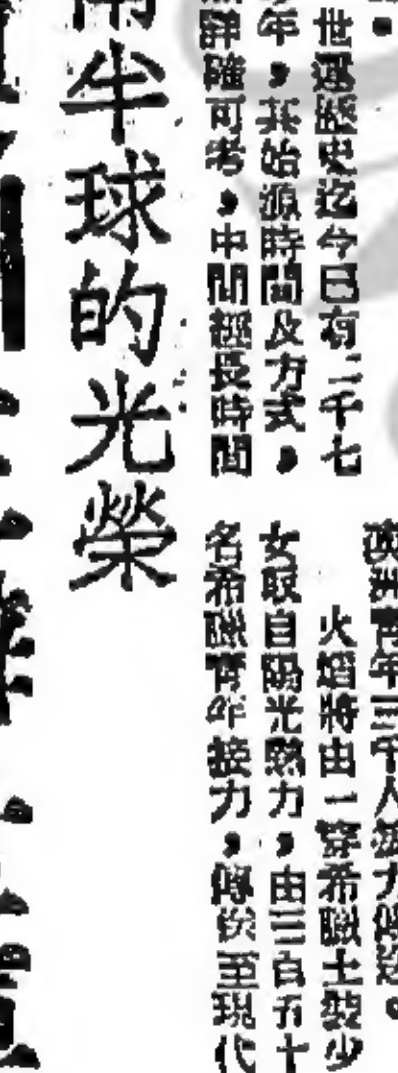 世運歷史迄今已有二千七
年，其始源時間及方式，
詳確可考，中間經長時間
澳洲青年三千人接力傳遞。
火焰將由一穿希臘士裝少
女取自陽光熱力，由三百五十
名希臘青年接力，傳送至現代
半球的光榮